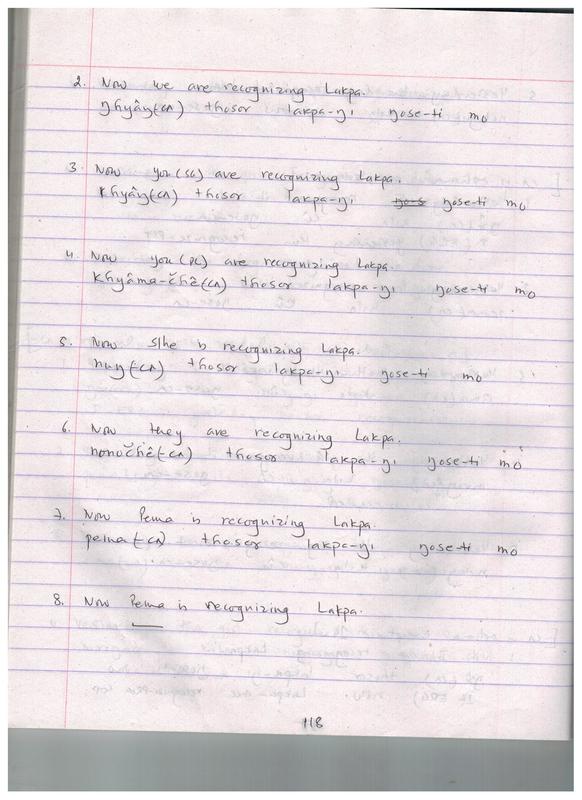 2. Now we are recognizing Lakpa.
ŋhyâŋ(-cʌ) thosor lakpa-ŋi ŋose-ti mo
3. Now you (SG) are recognizing Lakpa.
khyâŋ(-cʌ) thosor lakpa-ŋi ŋose-ti mo
4. Now you (PL) are recognizing Lakpa.
khyâma-čhê(cʌ) thosor lakpa-ŋi ŋose-ti mo
5. Now s/he is recognizing Lakpa.
huŋ(-cʌ) thosor lakpa-ŋi ŋose-ti mo
6. Now they are recognizing Lakpa.
nonočhê(-cʌ) thosor lakpa-ŋi ŋose-ti mo
7. Now Pema is recognizing Lakpa.
pema(-cʌ) thosor lakpa-ŋi ŋose-ti mo
8. Now Pema is recognizing Lakpa.
118